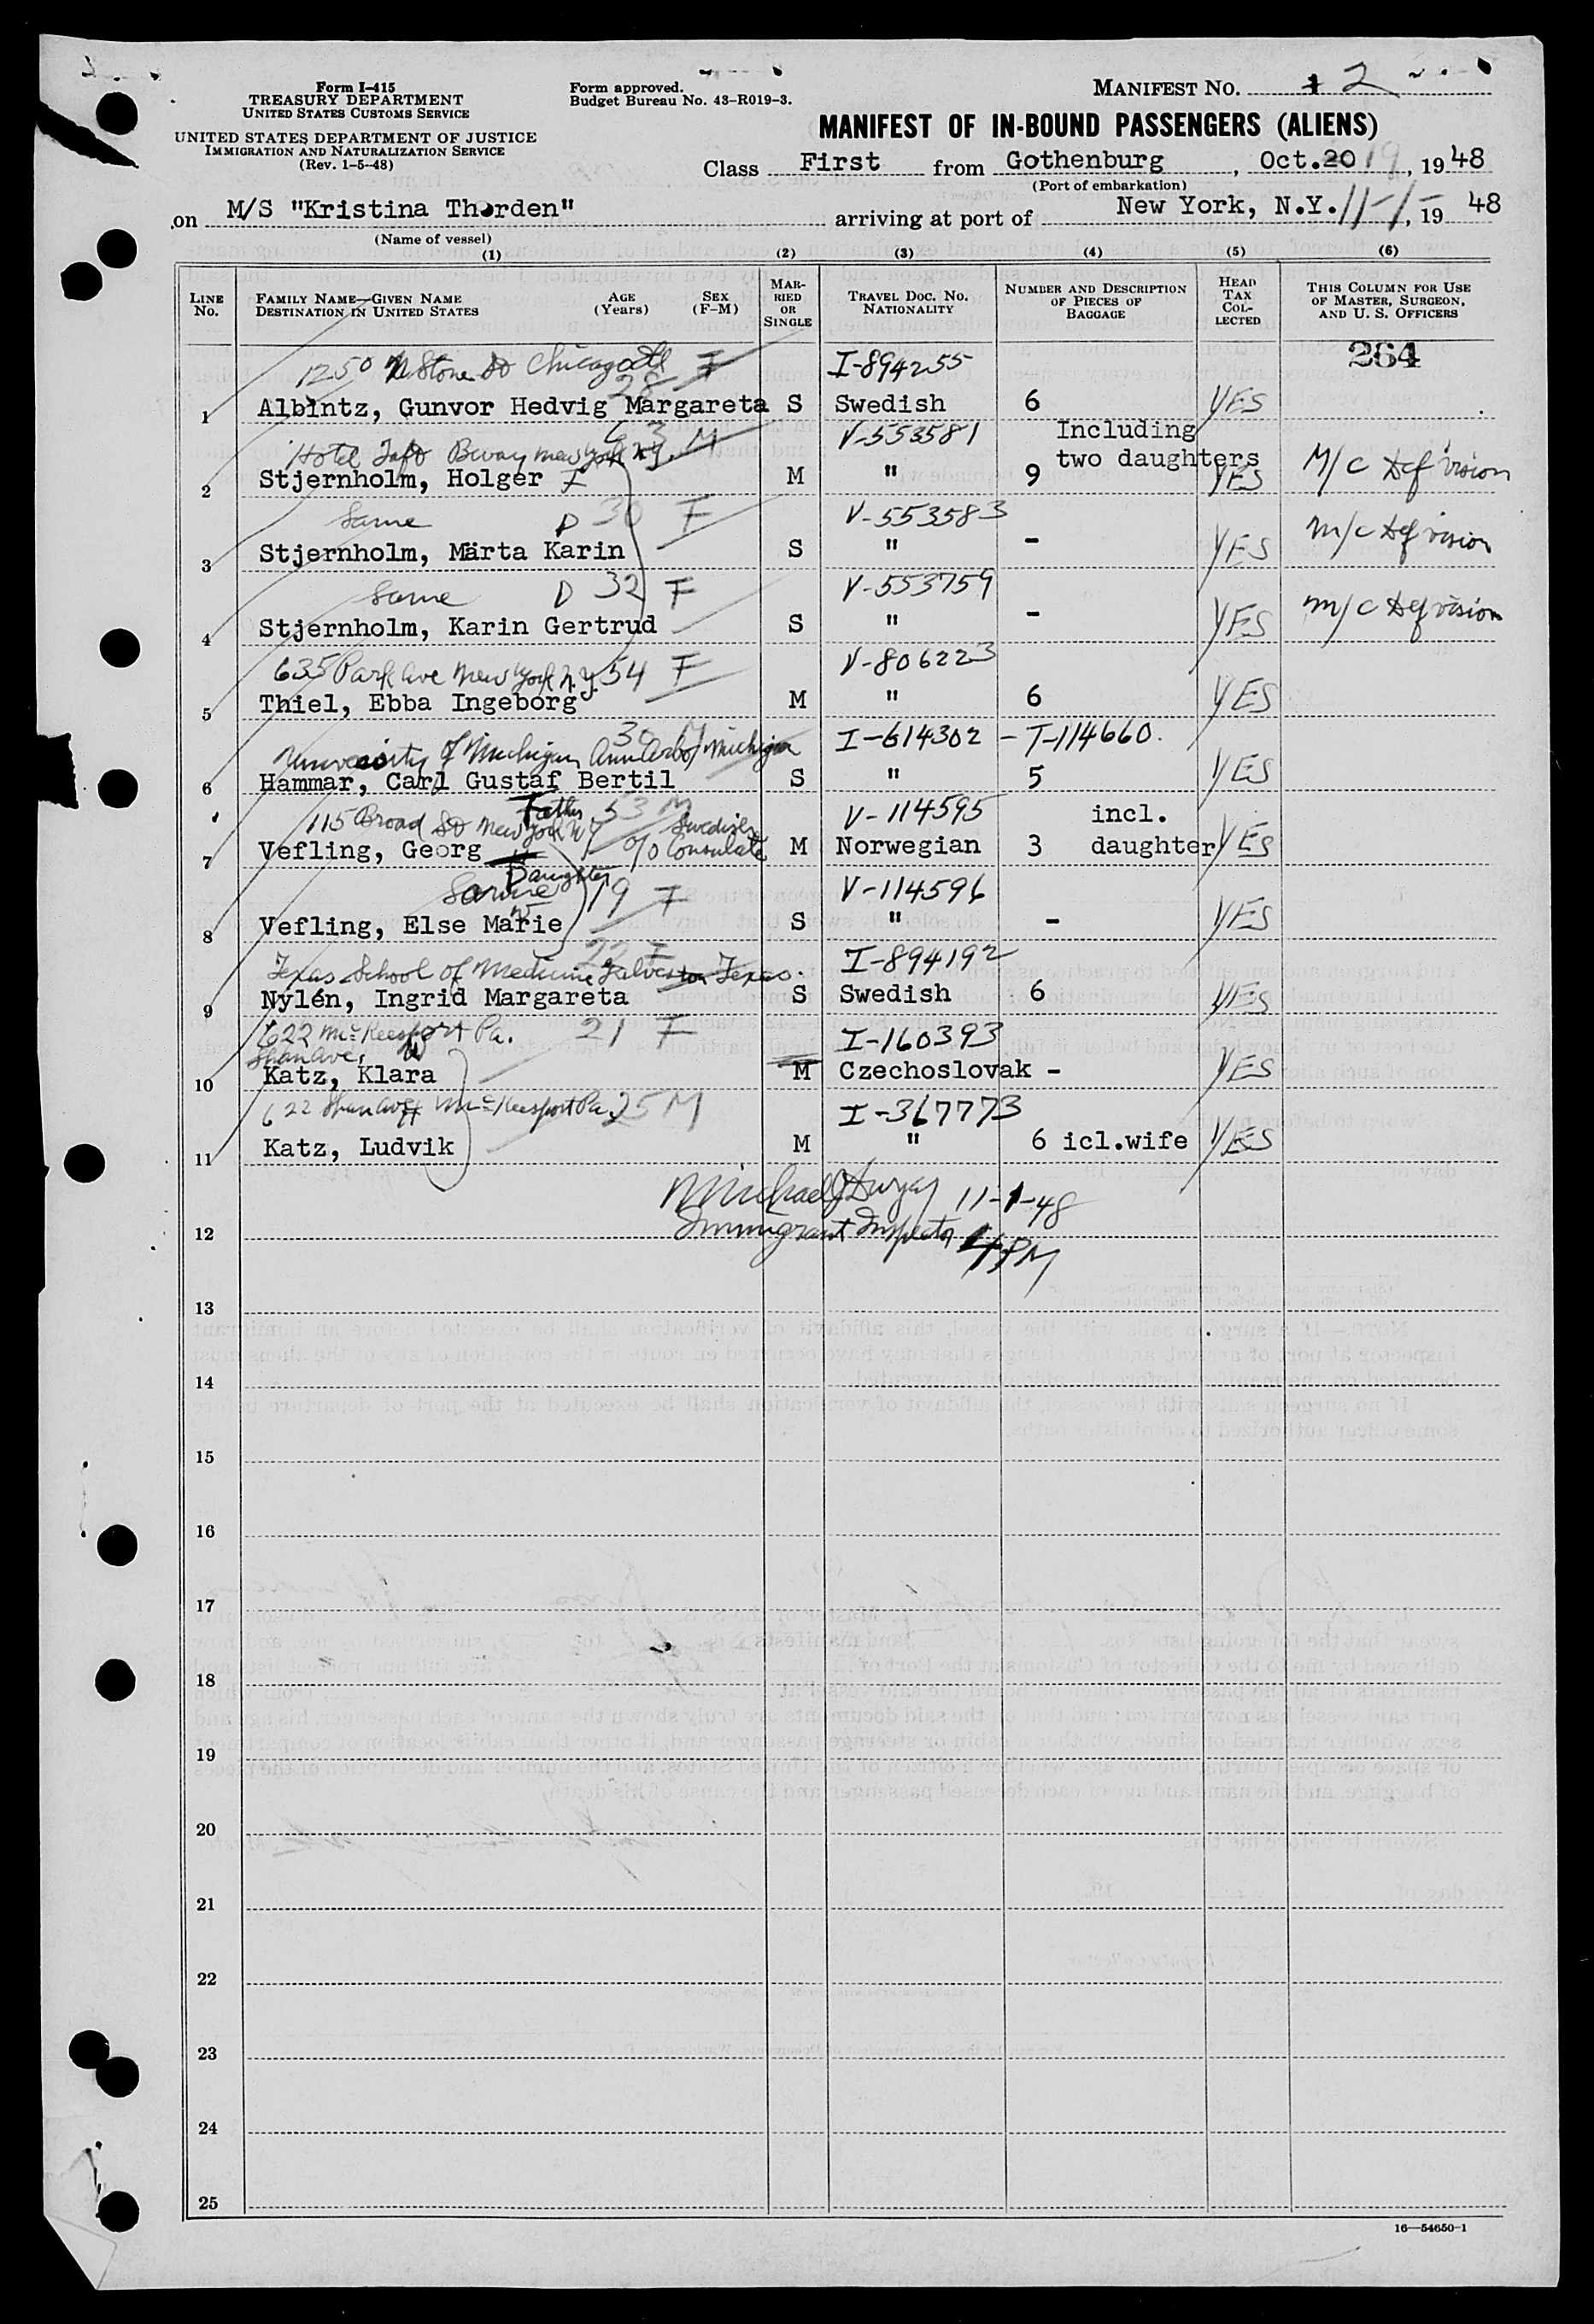 Form I-415
TREASURY DEPARTMENT
UNITED STATES CUSTOMS SERVICE
UNITED STATES DEPARTMENT OF JUSTICE
IMMIGRATION AND NATURALIZATION SERVICE
(Rev. 1-5-48)
Form approved.
Budget Bureau No. 43-R019-3.
MANIFEST NO. 2
MANIFEST OF IN-BOUND PASSENGERS (ALIENS)
Class First from Gothenburg, Oct. 20 19, 1948
(Port of embarkation)
on M/S "Kristina Thorden" arriving at port of New York, N.Y. 11-1-, 19 48
(Name of vessel)
(1) (2) (3) (4) (5) (6)
LINE No. FAMILY NAME—GIVEN NAME DESTINATION IN UNITED STATES AGE (Years) SEX (F-M) MARRIED OR SINGLE TRAVEL DOC. NO. NATIONALITY NUMBER AND DESCRIPTION OF PIECES OF BAGGAGE HEAD TAX COLLECTED THIS COLUMN FOR USE OF MASTER, SURGEON, AND U. S. OFFICERS
1250 N Stone St Chicago Ill 28 F I-894255 264
1 Albintz, Gunvor Hedvig Margareta S Swedish 6 YES
Hotel Taft Bway New York N.Y. 63 M V-553581 Including two daughters
2 Stjernholm, Holger F M " 9 YES M/C Def vision
Same D 30 F V-553583
3 Stjernholm, Märta Karin S " - YES M/C Def vision
Same D 32 F V-553759
4 Stjernholm, Karin Gertrud S " - YES M/C Def vision
635 Park Ave New York N.Y. 54 F V-806223
5 Thiel, Ebba Ingeborg M " 6 YES
University of Michigan Ann Arbor Michigan 30 M I-614302 - T-114660.
6 Hammar, Carl Gustaf Bertil S " 5 YES
Father 53 M V-114595 incl.
115 Broad St New York NY c/o Swedish Consulate
7 Vefling, Georg M Norwegian 3 daughter YES
Daughter
Same 19 F V-114596
8 Vefling, Else Marie S " - YES
22 F
Texas School of Medicine Galveston Texas. I-894192
9 Nylén, Ingrid Margareta S Swedish 6 YES
622 McKeesport Pa. 21 F I-160393
Shan Ave, W
10 Katz, Klara M Czechoslovak - YES
622 Shan Ave H McKeesport Pa. 25 M I-367773
11 Katz, Ludvik M " 6 icl.wife YES
Michael J 11-1-48
Immigrant Inspector 4 PM
12
13
14
15
16
17
18
19
20
21
22
23
24
25
16—54650-1